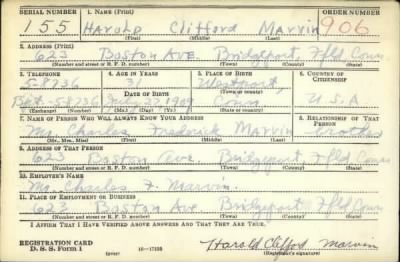 SERIAL NUMBER 1. NAME (Print) ORDER NUMBER
155 Harold Clifford Marvin 906
(First) (Middle) (Last)
2. ADDRESS (Print)
623 Boston Ave. Bridgeport, Ffld, Conn
(Number and street or R. F. D. number) (Town) (County) (State)
3. TELEPHONE 4. AGE IN YEARS 5. PLACE OF BIRTH 6. COUNTRY OF CITIZENSHIP
5-8736 31 Westport,
DATE OF BIRTH
1909 Conn U.S.A
(Exchange) (Number) (Mo.) (Day) (Yr.) (Town or county) (State or country)
7. NAME OF PERSON WHO WILL ALWAYS KNOW YOUR ADDRESS 8. RELATIONSHIP OF THAT PERSON
Mr. Charles Frederick Marvin Brother
(Mr., Mrs., Miss) (First) (Middle) (Last)
9. ADDRESS OF THAT PERSON
623 Boston Ave. Bridgeport, Ffld Conn
(Number and street or R. F. D. number) (Town) (County) (State)
10. EMPLOYER'S NAME
Mr. Charles F. Marvin.
11. PLACE OF EMPLOYMENT OR BUSINESS
623 Boston Ave Bridgeport Ffld Conn
(Number and street or R. F. D. number) (Town) (County) (State)
I AFFIRM THAT I HAVE VERIFIED ABOVE ANSWERS AND THAT THEY ARE TRUE.
REGISTRATION CARD
D. S. S. Form 1 (over) 16—17105 Harold Clifford Marvin
(Registrant's signature)